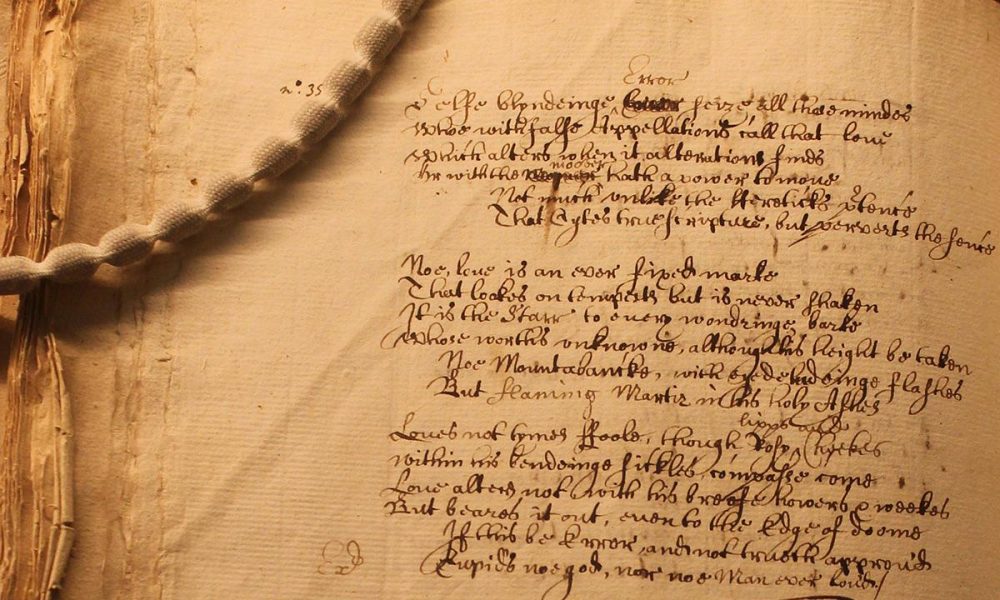 Error
n°: 35
Selfe blyndeinge seize all those mindes
Whoe with false Appellations call that love
Which alters when it alterations finds
mover
Or with the hath a power to move
Not much unlike the Hereticks p̱tence
That Cytes true scripture, but perverts the sence
Noe, love is an ever fixed marke
That lookes on tempests but is never shaken
It is the Starr to every wondringe barke
Whose worths unknowne, although his height be taken
Noe Mountabancke, with eyedeludeinge flashes
But flaming Martir in his holy Ashes
lipps and
Loves not tymes ffoole, though Rosy Cheekes
within his bendeinge sickles, compasse come
Love alters not with his breefe howers & weekes
But beares it out, even to the Edge of doome
If this be Error, and not trueth approv'd
Cupids noe god, nor noe Man ever lov'd